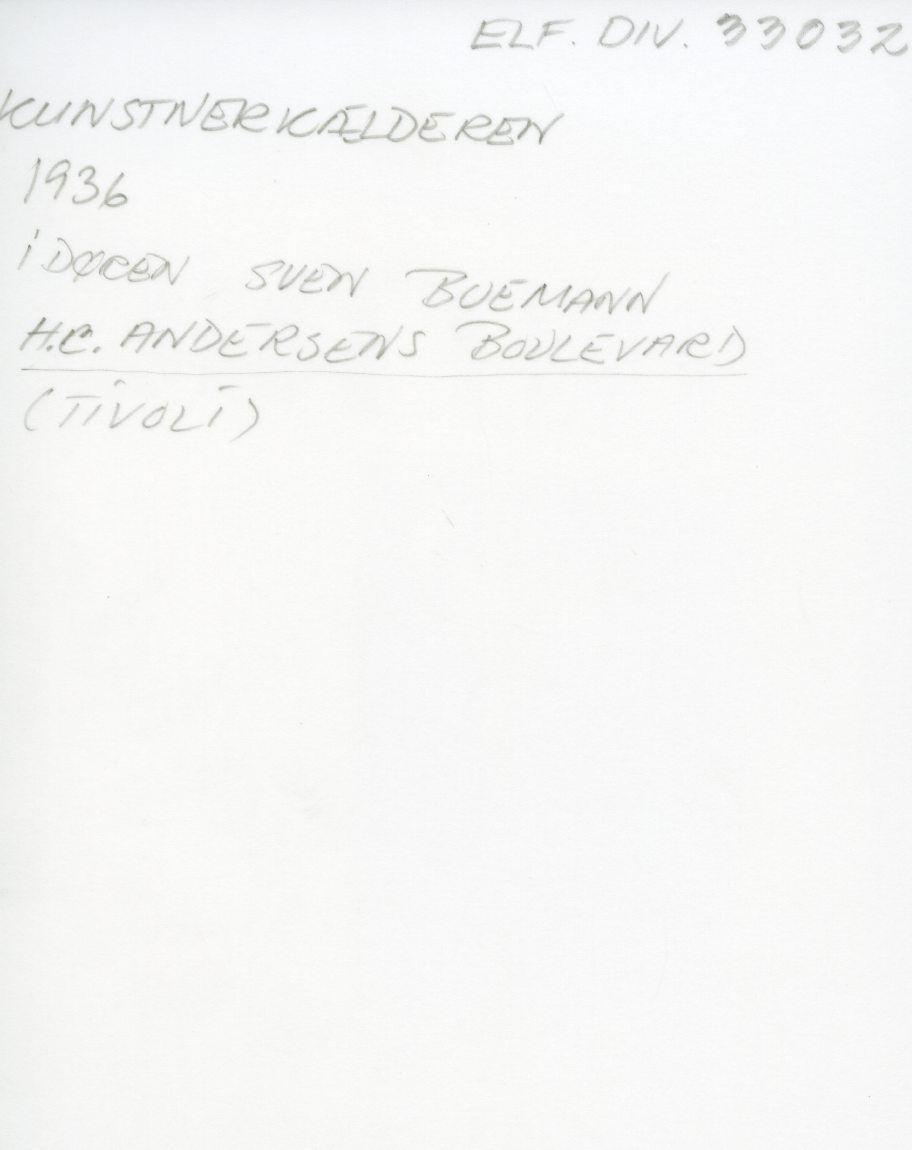 ELF. DIV. 33032
KUNSTNERKÆLDEREN
1936
i DØREN SVEN BUEMANN
H.C. ANDERSENS BOULEVARD
(TiVOLi)